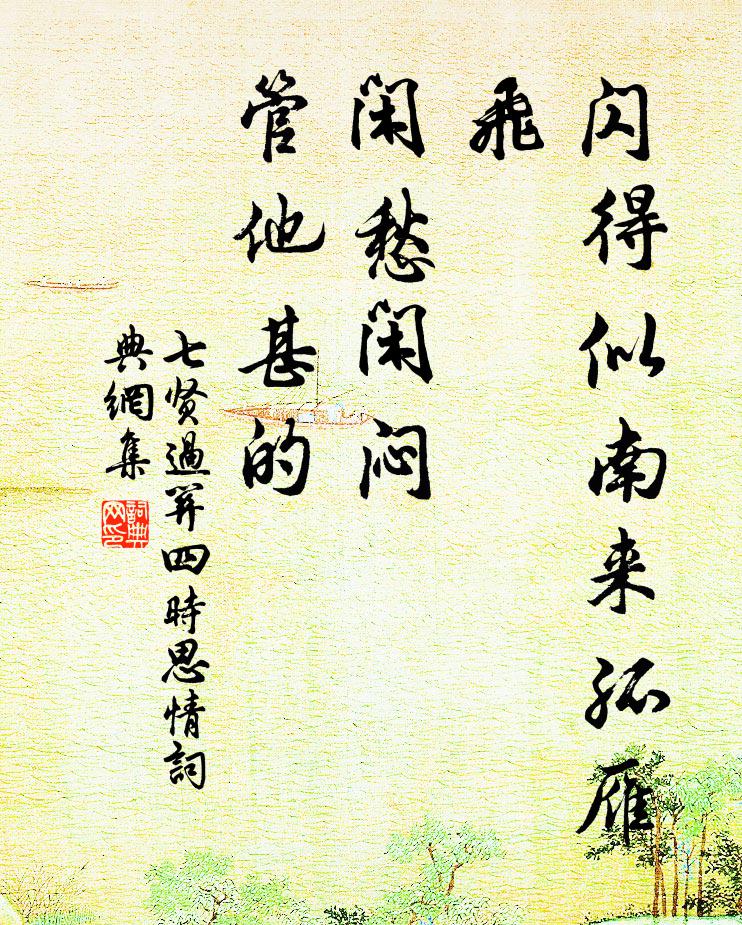 闪得似南来孤雁
飛
闲愁闲闷
管他甚的
七贤過关四時思情詞
典網集
詞典
网印